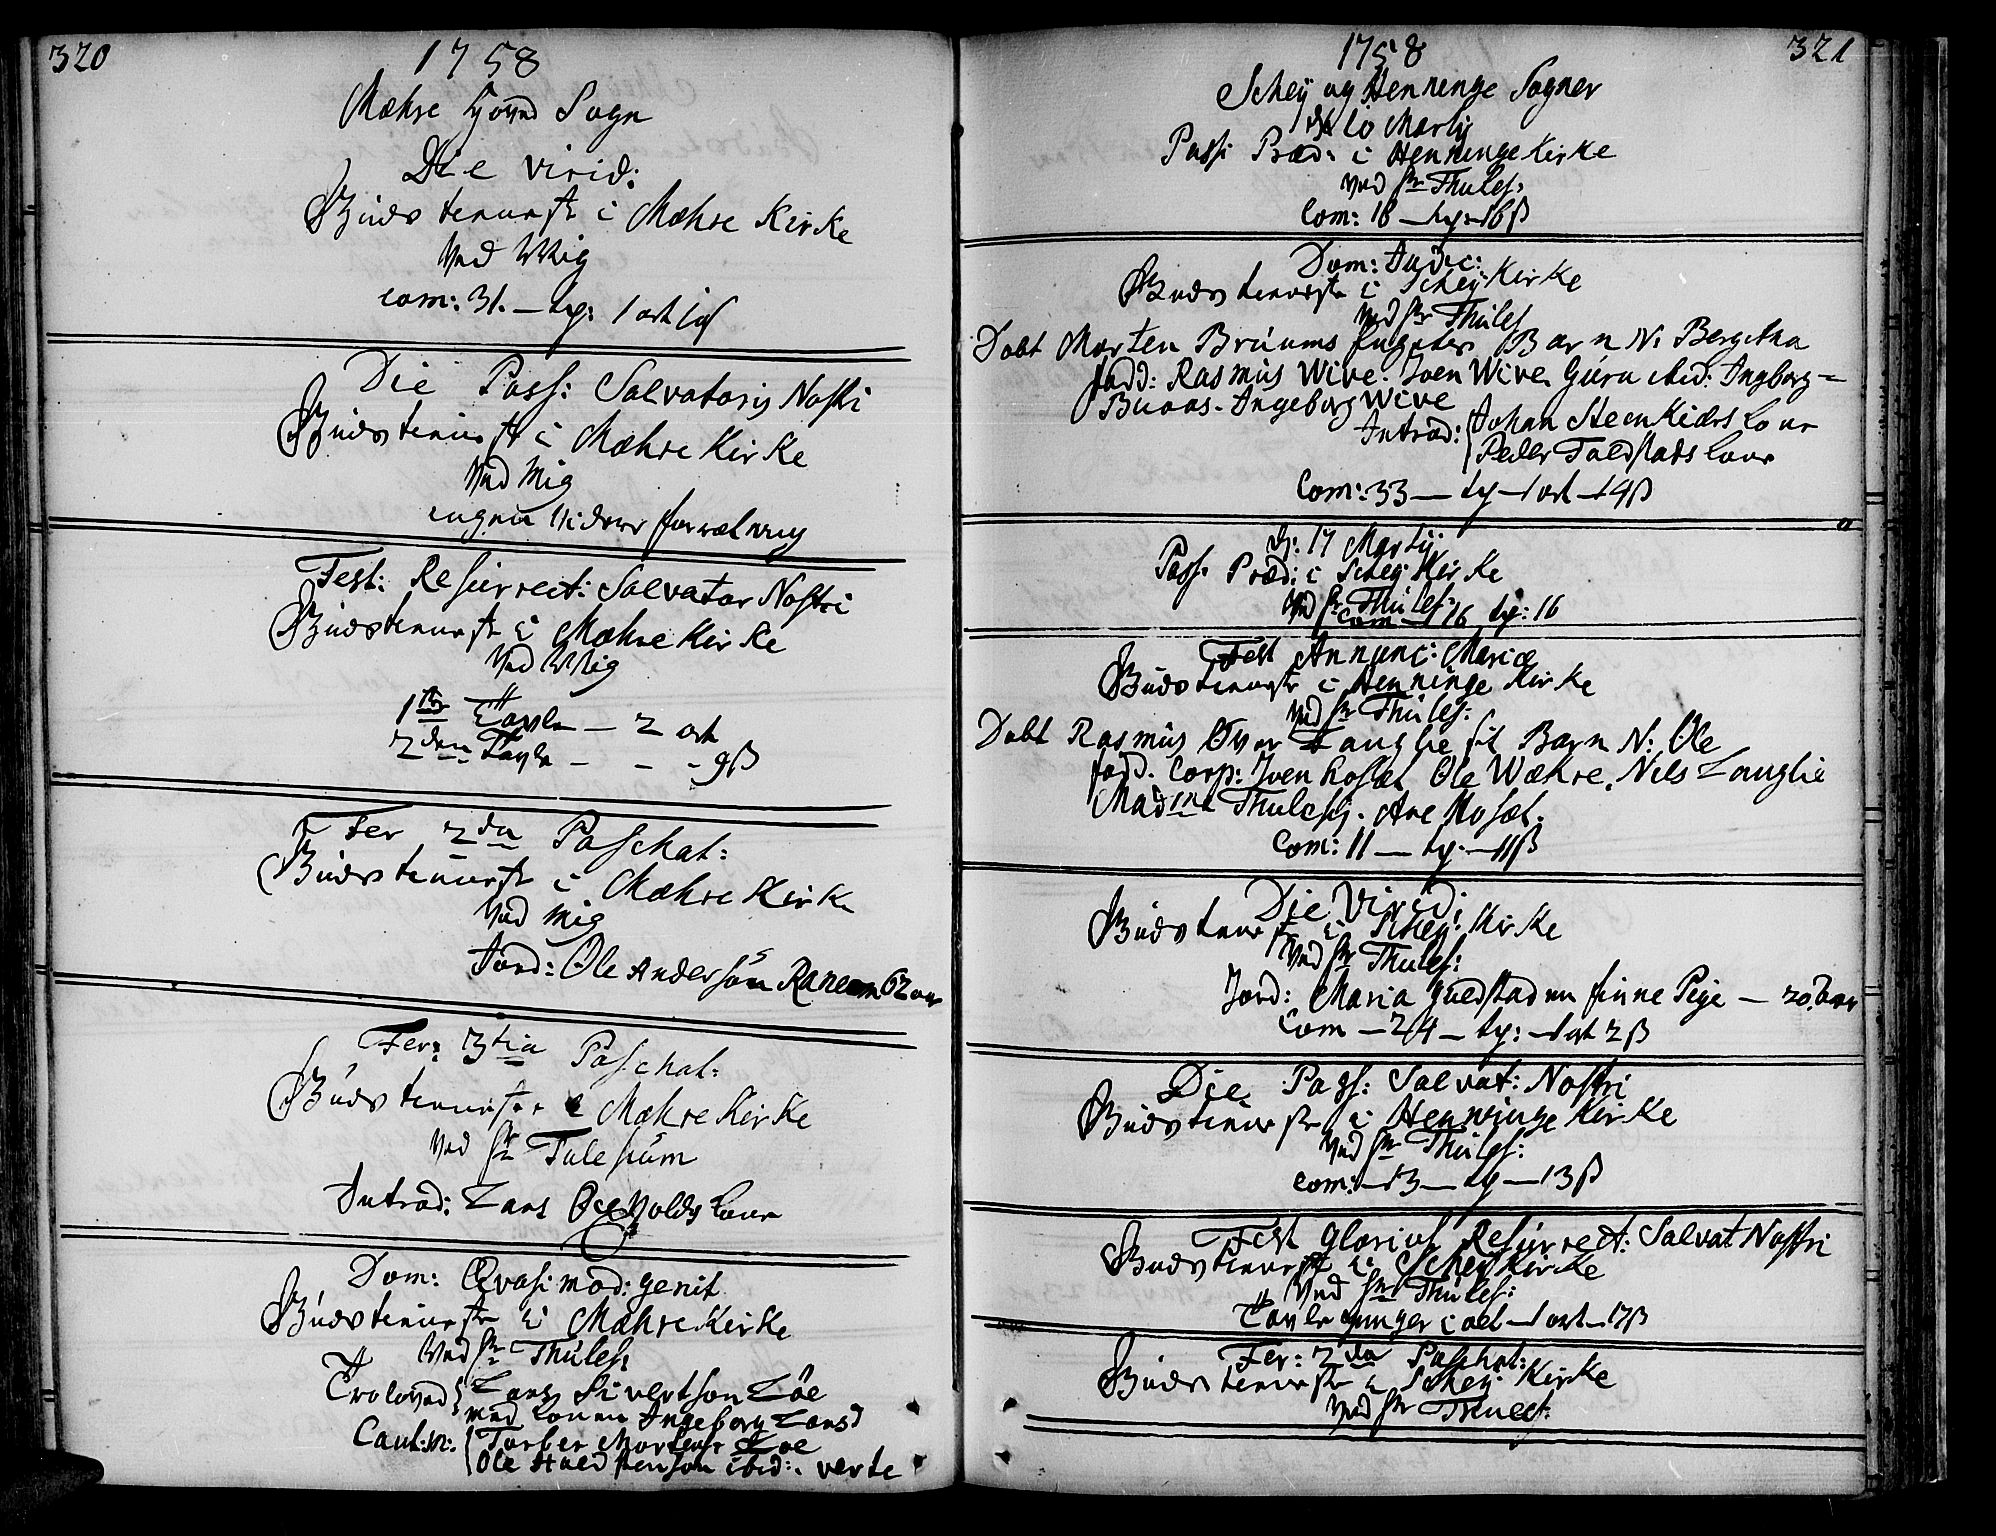 320
1758
Mæhre Hoved Sogn
Die virid:
Gudstienneste i Mæhre Kirke
ved Mig
com: 31. — ty: 1 ort
Die Pass: Salvatoris Nostri
Gudstienneste i Mæhre Kirke
ved Mig
ingen Videre forretning
Fest: Resurrect: Salvator Nostri
Gudstienneste i Mæhre Kirke
ved Mig
1ste Tavle — 2 ort
2den Tavle — — - 9ß
Fer 2da Paschat:
Gudstienneste i Mæhre Kirke
ved Mig
Jord: Ole Anderssön Ranem 62 aar
Fer: 3tia Paschat:
Gudstienneste i Mæhre Kirke
ved Hr Tulesium
Introd: Lars Kone
Dom: Qvasimod: genit
Gudstienneste i Mæhre Kirke
ved Hr Thules:
Troloved Lars Sivertson Löe
med Konen Ingeborg Larsd
Caut:n: Torber Mortens Löe
Ole Haldstenson ibid: verte
1758
321
Schey og Henninge Sogner
d 10 Martij
Pass: Præd: i Henninge Kirke
ved Hr Thules:
Com: 16 — ty — 16ß
Dom: Judic:
Gudstienneste i Schey Kirke
ved Hr Thules
Döbt Morten Bruums Barn N: Bergitha
fadd: Rasmus Wive. Joen Wive Guru ibid: Ingborg
Buaas. Ingeborg Wive
Introd: Johan Steenkiers Kone
Peder Faldstads Kone
Com: 33 — ty — 1 ort — 9ß
d: 17 Martij
Pass: Præd: i Schey Kirke
ved Hr Thules:
Com — 16 ty: 16
Fest Annunc: Mariæ
Gudstienneste i Henninge Kirke
ved Hr Thules:
Döbt Rasmus Över Langlie sit Barn N: Ole
fadd. Corp: Joen Ole Wæhre. Nils Langlie
Madme Thulesij. Ane Mosæt.
Com: 11 — ty. — 11ß
Die Virid:
Gudstienneste i Schey Kirke
ved Hr Thules:
Jord: Maria Guldstad en finne Pige — 20 aar
Com — 24 — ty: — 1 ort 2ß
Die Pass: Salvat: Nostri
Gudstienneste i Henninge Kirke
ved Hr Thules:
com: — 13 — ty — 13ß
Fest Gloriös Resurrect: Salvat Nostri
Gudstienneste i Schey Kirke
ved Hr Thules:
Tavle penger i alt — 1 ort — 17ß
Fer: 2da Paschat:
Gudstienneste i Schey Kirke
ved Hr Thules: